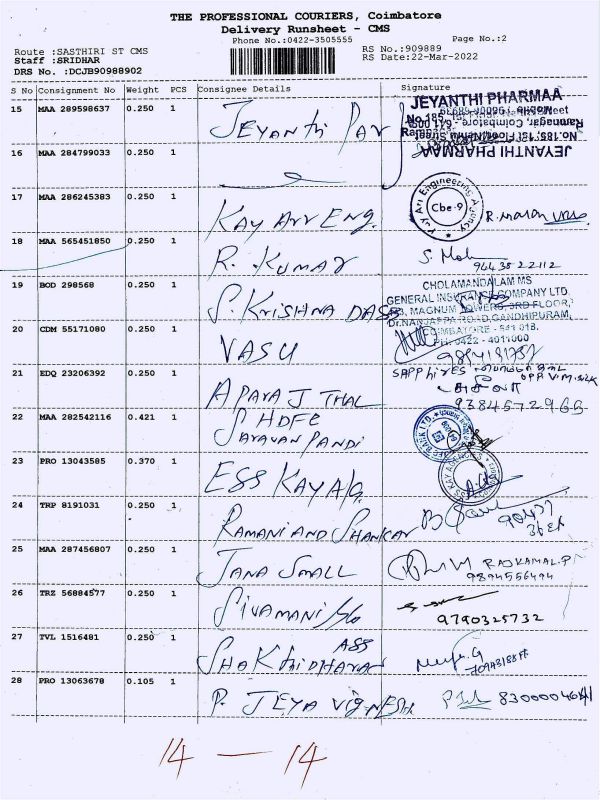 THE PROFESSIONAL COURIERS, Coimbatore
Delivery Runsheet - CMS
Phone No.:0422-3505555
Page No.:2
Route :SASTHIRI ST CMS
RS No.:909889
Staff :SRIDHAR
RS Date:22-Mar-2022
DRS No. :DCJB90988902
S No Consignment No Weight PCS Consignee Details Signature
15 MAA 289598637 0.250 1 JEYANTHI PAR JEYANTHI PHARMAA
No.185,
Ramnagar, Coimbatore
JEYANTHI PHARMAA
16 MAA 284799033 0.250 1
17 MAA 286245383 0.250 1 KAY ARR ENG. Kay Arr Engineering Agency Cbe-9
18 MAA 565451850 0.250 1 R. KUMAR S. Moh 9443522112
19 BOD 298568 0.250 1 S. KRISHNA DASS CHOLAMANDALAM MS
GENERAL INSURANCE COMPANY LTD.
MAGNUM TOWERS, 3RD FLOOR,
Dr.NANJAPPA ROAD, GANDHIPURAM,
COIMBATORE - 641 018.
PH: 0422 - 4011000
20 CDM 55171080 0.250 1 VASU
21 EDQ 23206392 0.250 1 APARAJ THAL SAPPhIRES
9384572966
22 MAA 282542116 0.421 1 HDFC
SARAVAN PANDI
23 PRO 13043585 0.370 1 ESS KAY A/G.
24 TRP 8191031 0.250 1 RAMANI AND SHANKAR
25 MAA 287456807 0.250 1 JANA SMALL RAJKAMAL.P
9894556494
26 TRZ 56884577 0.250 1 SIVAMANI 9790325732
27 TVL 1516481 0.250 1 ASS
SHAKTHIDHARAN
28 PRO 13063678 0.105 1 P. JEYA VIGNESH
14 — 14